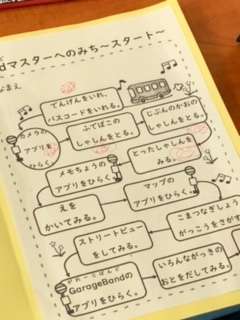 dマスターへのみち〜スタート〜
でんげんをいれ、
パスコードをいれる。
じぶんのかおの
しゃしんをとる。
カメラの
アプリを
ひらく。
ふでばこの
しゃしんをとる。
とったしゃしんを
みる。
メモちょうの
アプリをひらく。
マップの
アプリをひらく。
えを
かいてみる。
こまつなぎしょう
がっこうをさがす
ストリートビュー
をしてみる。
GarageBandの
アプリをひらく。
いろんながっきの
おとをだしてみる。